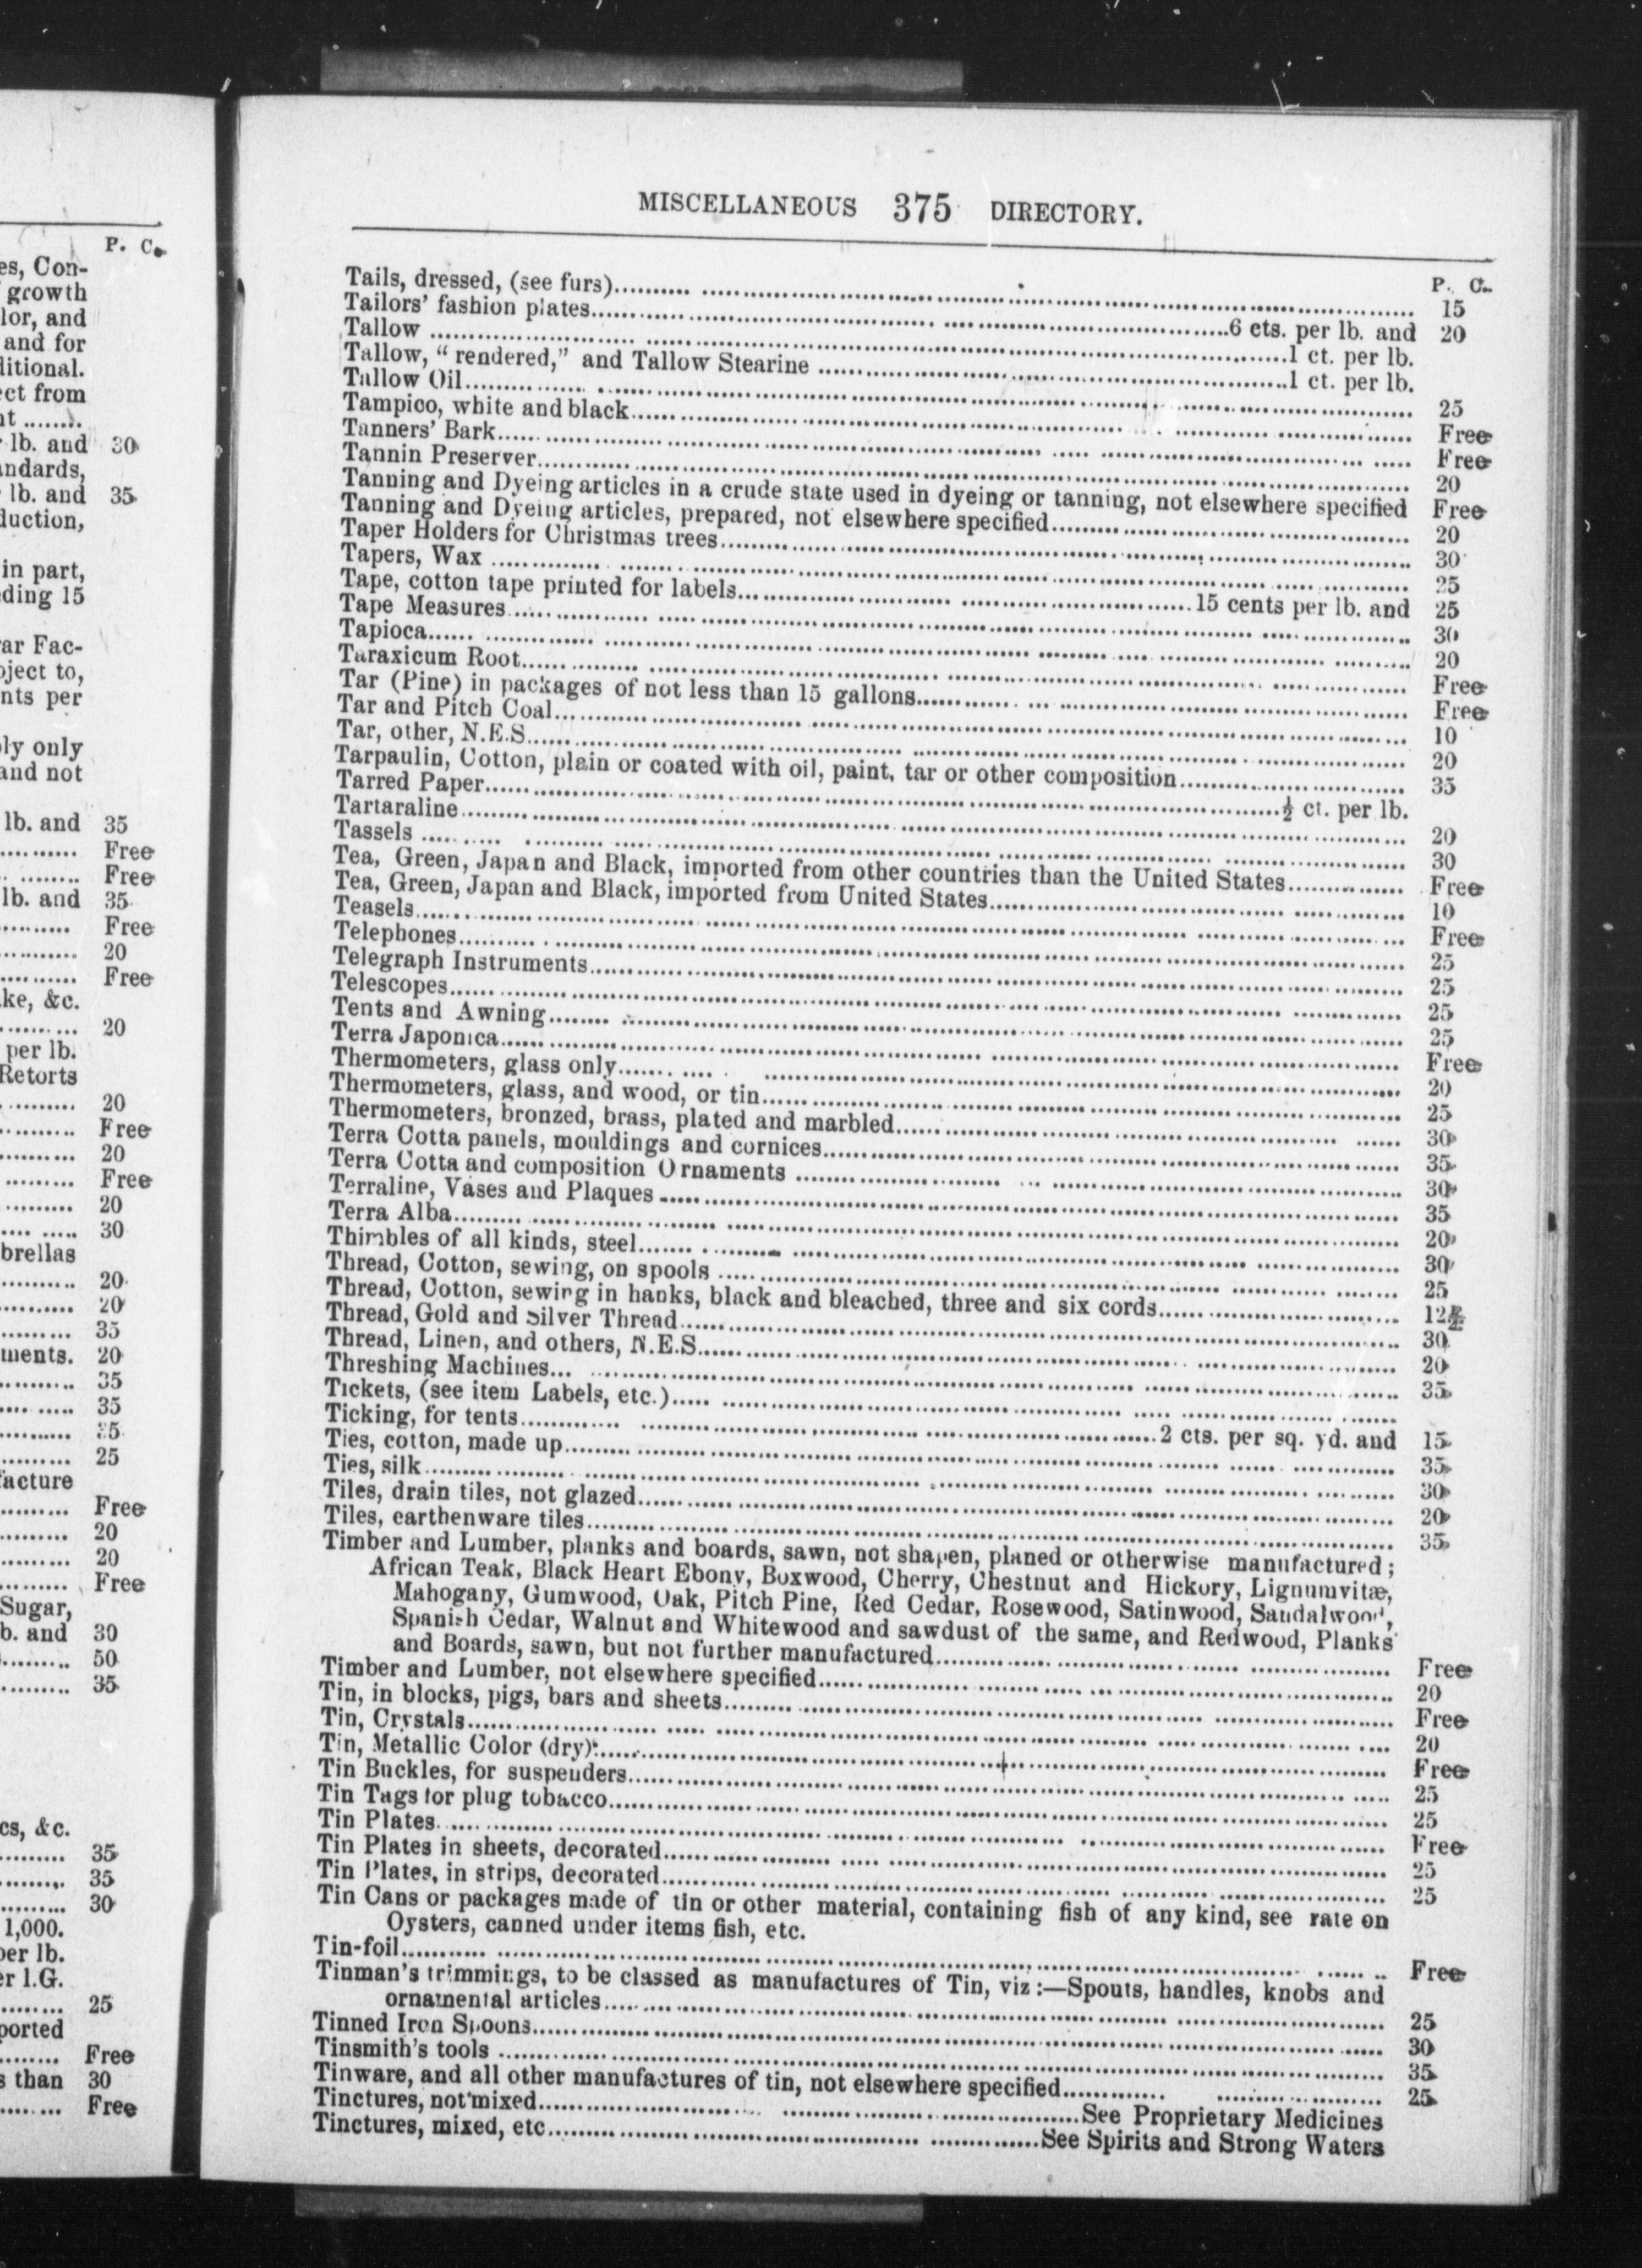 P. C.
es, Con-
growth
lor, and
and for
ditional.
ect from
nt ........
lb. and 30
andards,
lb. and 35
duction,
in part,
ding 15
ar Fac-
oject to,
nts per
ly only
and not
lb. and 35
.......... Free
.......... Free
lb. and 35
.......... Free
.......... 20
.......... Free
ke, &c.
.......... 20
per lb.
Retorts
.......... 20
.......... Free
.......... 20
.......... Free
.......... 20
.......... 30
brellas
.......... 20
.......... 20
.......... 35
ments. 20
.......... 35
.......... 35
.......... 35
.......... 25
facture
.......... Free
.......... 20
.......... 20
.......... Free
Sugar,
b. and 30
.......... 50
.......... 35
cs, &c.
.......... 35
.......... 35
.......... 30
1,000.
per lb.
er I.G.
.......... 25
ported
.......... Free
s than 30
.......... Free
MISCELLANEOUS 375 DIRECTORY.
P. C.
Tails, dressed, (see furs).......... 15
Tailors' fashion plates..........6 cts. per lb. and 20
Tallow ..........1 ct. per lb.
Tallow, "rendered," and Tallow Stearine ..........1 ct. per lb.
Tallow Oil.......... 25
Tampico, white and black.......... Free
Tanners' Bark.......... Free
Tannin Preserver.......... 20
Tanning and Dyeing articles in a crude state used in dyeing or tanning, not elsewhere specified Free
Tanning and Dyeing articles, prepared, not elsewhere specified.......... 20
Taper Holders for Christmas trees.......... 30
Tapers, Wax .......... 25
Tape, cotton tape printed for labels..........15 cents per lb. and 25
Tape Measures.......... 30
Tapioca.......... 20
Taraxicum Root.......... Free
Tar (Pine) in packages of not less than 15 gallons.......... Free
Tar and Pitch Coal.......... 10
Tar, other, N.E.S.......... 20
Tarpaulin, Cotton, plain or coated with oil, paint, tar or other composition.......... 35
Tarred Paper..........½ ct. per lb.
Tartaraline.......... 20
Tassels .......... 30
Tea, Green, Japan and Black, imported from other countries than the United States.......... Free
Tea, Green, Japan and Black, imported from United States.......... 10
Teasels.......... Free
Telephones.......... 25
Telegraph Instruments.......... 25
Telescopes.......... 25
Tents and Awning.......... 25
Terra Japonica.......... Free
Thermometers, glass only.......... 20
Thermometers, glass, and wood, or tin.......... 25
Thermometers, bronzed, brass, plated and marbled.......... 30
Terra Cotta panels, mouldings and cornices.......... 35
Terra Cotta and composition Ornaments .......... 30
Terraline, Vases and Plaques .......... 35
Terra Alba.......... 20
Thimbles of all kinds, steel.......... 30
Thread, Cotton, sewing, on spools .......... 25
Thread, Cotton, sewing in hanks, black and bleached, three and six cords.......... 12½
Thread, Gold and Silver Thread.......... 30
Thread, Linen, and others, N.E.S.......... 20
Threshing Machines.......... 35
Tickets, (see item Labels, etc.)..........
Ticking, for tents..........2 cts. per sq. yd. and 15
Ties, cotton, made up.......... 35
Ties, silk.......... 30
Tiles, drain tiles, not glazed.......... 20
Tiles, earthenware tiles.......... 35
Timber and Lumber, planks and boards, sawn, not shapen, planed or otherwise manufactured;
African Teak, Black Heart Ebony, Boxwood, Cherry, Chestnut and Hickory, Lignumvitæ,
Mahogany, Gumwood, Oak, Pitch Pine, Red Cedar, Rosewood, Satinwood, Sandalwood,
Spanish Cedar, Walnut and Whitewood and sawdust of the same, and Redwood, Planks
and Boards, sawn, but not further manufactured.......... Free
Timber and Lumber, not elsewhere specified.......... 20
Tin, in blocks, pigs, bars and sheets.......... Free
Tin, Crystals.......... 20
Tin, Metallic Color (dry).......... Free
Tin Buckles, for suspenders.......... 25
Tin Tags for plug tobacco.......... 25
Tin Plates.......... Free
Tin Plates in sheets, decorated.......... 25
Tin Plates, in strips, decorated.......... 25
Tin Cans or packages made of tin or other material, containing fish of any kind, see rate on
Oysters, canned under items fish, etc.
Tin-foil.......... Free
Tinman's trimmings, to be classed as manufactures of Tin, viz:—Spouts, handles, knobs and
ornamental articles.......... 25
Tinned Iron Spoons.......... 30
Tinsmith's tools .......... 35
Tinware, and all other manufactures of tin, not elsewhere specified.......... 25
Tinctures, not mixed..........See Proprietary Medicines
Tinctures, mixed, etc..........See Spirits and Strong Waters